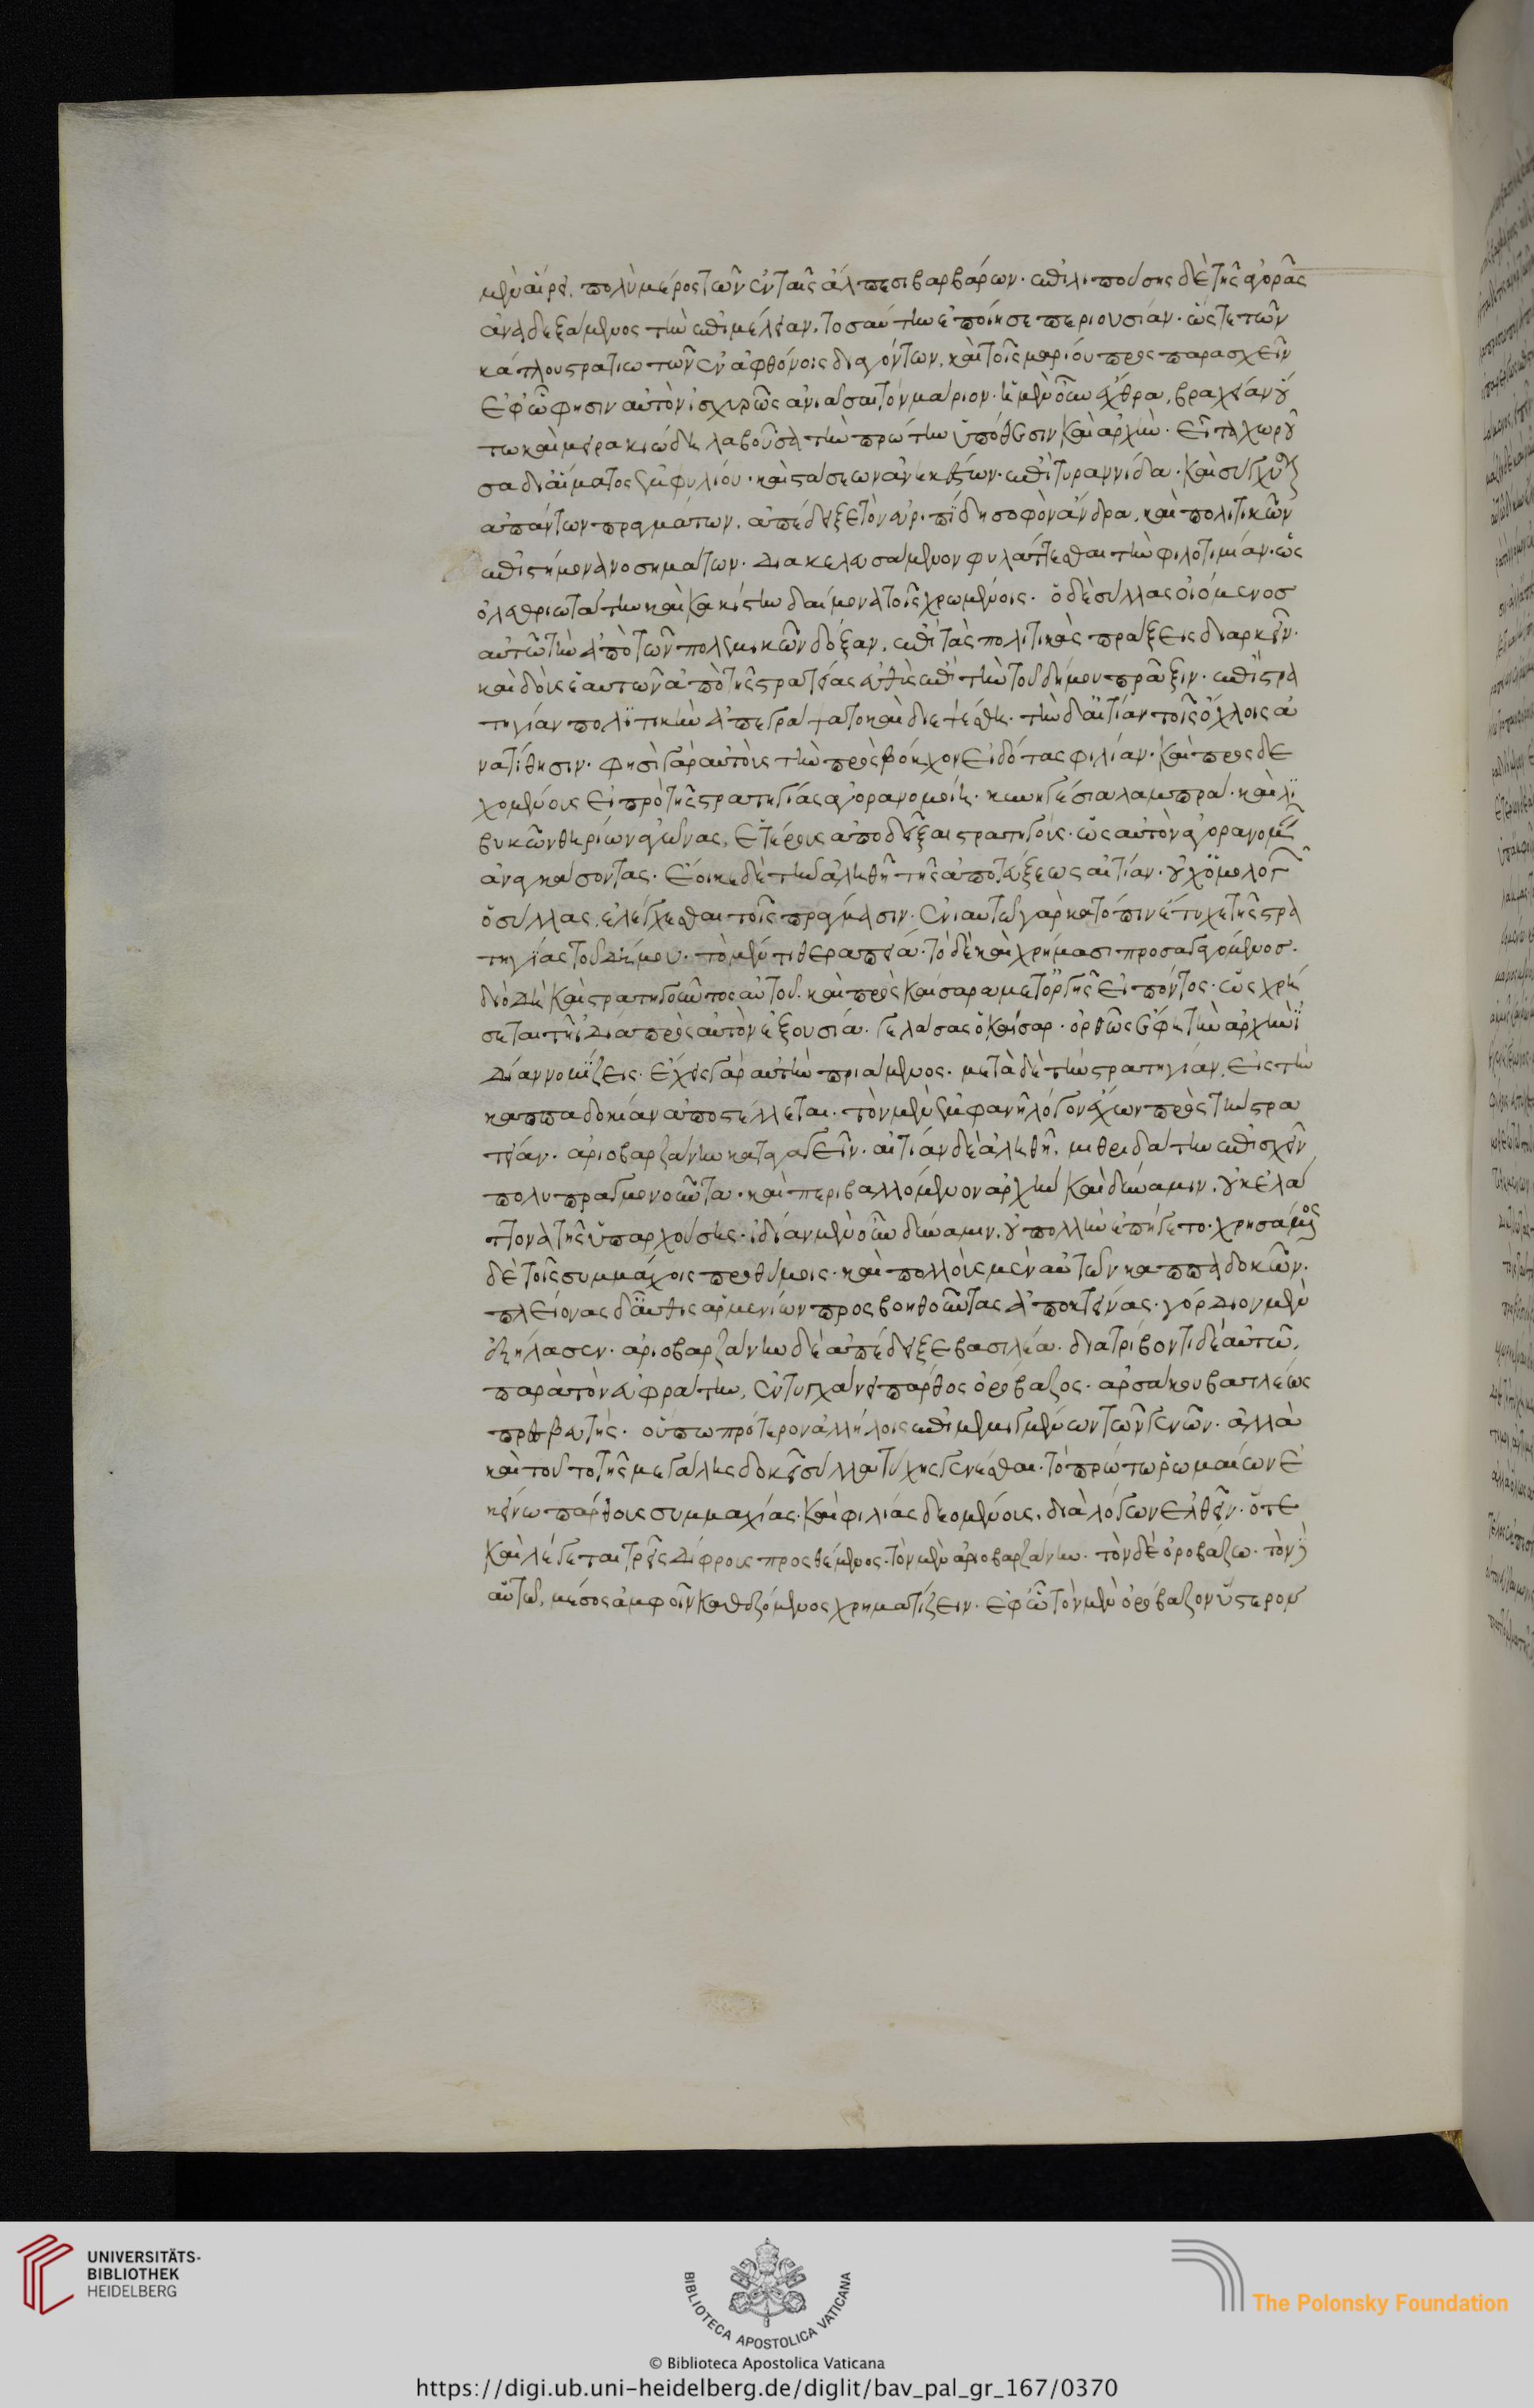 μὲν αἱρεῖ, πολὺ μέρος τῶν ἐν ταῖς ἄλπεσι βαρβάρων· ἐπιλιπούσης δὲ τῆς ἀγορᾶς
ἀναδεξάμενος τὴν ἐπιμέλειαν, τοσαύτην ἐποίησε περιουσίαν· ὥστε τῶν
κάτλου στρατιωτῶν ἐν ἀφθόνοις διαγόντων, καὶ τοῖς μαρίου προσπαρασχεῖν
ἐφ' ᾧ φησιν αὐτὸν ἰσχυρῶς ἀνιᾶσαι τὸν μάριον· ἡ μὲν οὖν ἔχθρα, βραχεῖαν οὕ
τω καὶ μειρακιώδη λαβοῦσα τὴν πρώτην ὑπόθεσιν καὶ ἀρχὴν· εἶτα χωροῦ
σα δι' αἵματος ἐμφυλίου· καὶ στάσεων ἀνηκέστων· ἐπὶ τυραννίδα· καὶ σύγχυσιν
ἁπάντων πραγμάτων, ἀπέδειξε τὸν εὐριπίδην σοφὸν ἄνδρα, καὶ πολιτικῶν
ἐπιστήμονα νοσημάτων· διακελευσάμενον φυλάττεσθαι τὴν φιλοτιμίαν· ὡς
ὀλεθριωτάτην καὶ κακίστην δαίμονα τοῖς χρωμένοις· ὁ δὲ σύλλας οἰόμενος
αὐτῷ τὴν ἀπὸ τῶν πολεμικῶν δόξαν, ἐπὶ τὰς πολιτικὰς πράξεις διαρκεῖν·
καὶ δοὺς ἑαυτὸν ἀπὸ τῆς στρατείας εὐθὺς ἐπὶ τὴν τοῦ δήμου πρᾶξιν· ἐπὶ στρα
τηγίαν πολιτικὴν ἀπεγράψατο καὶ διεψεύσθη· τὴν δ' αἰτίαν τοῖς ὄχλοις ἀ
νατίθησιν· φησὶ γὰρ αὐτοὺς τὴν πρὸς βόκχον εἰδότας φιλίαν· καὶ προσδε
χομένους εἰ πρὸ τῆς στρατηγίας ἀγορανομοίη· κυνηγέσια λαμπρὰ· καὶ λι
βυκῶν θηρίων ἀγῶνας, ἑτέρους ἀποδεῖξαι στρατηγούς· ὡς αὐτὸν ἀγορανομεῖν
ἀναγκάσοντας· ἔοικε δὲ τὴν ἀληθῆ τῆς ἀποτεύξεως αἰτίαν· οὐχ ὁμολογῶν
ὁ σύλλας, ἐλέγχεσθαι τοῖς πράγμασιν· ἐνιαυτῷ γὰρ κατόπιν ἔτυχε τῆς στρα
τηγίας τοῦ δήμου· τὸ μέν τι θεραπείᾳ· τὸ δὲ καὶ χρήμασι προσαγαγόμενος·
διὸ δὴ καὶ στρατηγοῦντος αὐτοῦ· καὶ πρὸς καίσαρα μετ' ὀργῆς εἰπόντος· ὡς χρή
σεται τῇ ἰδίᾳ πρὸς αὐτὸν ἐξουσίᾳ· γελάσας ὁ καῖσαρ· ὀρθῶς ἔφη τὴν ἀρχὴν ἰ
δίαν νομίζεις· ἔχεις γὰρ αὐτὴν πριάμενος· μετὰ δὲ τὴν στρατηγίαν, εἰς τὴν
καππαδοκίαν ἀποστέλλεται· τὸν μὲν ἐμφανῆ λόγον ἔχων πρὸς τὴν στρα
τείαν· ἀριοβαρζάνην καταγαγεῖν· αἰτίαν δὲ ἀληθῆ, μιθριδάτην ἐπισχεῖν
πολυπραγμονοῦντα· καὶ περιβαλλόμενον ἀρχὴν καὶ δύναμιν, οὐκ ἐλά
ττονα τῆς ὑπαρχούσης· ἰδίαν μὲν οὖν δύναμιν, οὐ πολλὴν ἐπήγετο· χρησάμενος
δὲ τοῖς συμμάχοις προθύμοις· καὶ πολλοὺς μὲν αὐτῶν καππαδοκῶν·
πλείονας δ' αὖθις ἀρμενίων προσβοηθοῦντας ἀποκτείνας· γόρδιον μὲν
ἐξήλασεν· ἀριοβαρζάνην δὲ ἀπέδειξε βασιλέα· διατρίβοντι δὲ αὐτῷ,
παρὰ τὸν εὐφράτην, ἐντυγχάνει πάρθος ὀρόβαζος· ἀρσάκου βασιλέως
πρεσβευτής· οὔπω πρότερον ἀλλήλοις ἐπιμεμιγμένων τῶν γενῶν· ἀλλὰ
καὶ τοῦτο τῆς μεγάλης δοκεῖ σύλλα τύχης γενέσθαι· τὸ πρώτῳ ῥωμαίων ἐ
κείνῳ πάρθους συμμαχίας· καὶ φιλίας δεομένους, διὰ λόγων ἐλθεῖν· ὅτε
καὶ λέγεται τρεῖς δίφρους προσθέμενος· τὸν μὲν ἀριοβαρζάνην· τὸν δὲ ὀροβάζῳ· τὸν δὲ
αὑτῷ, μέσος ἀμφοῖν καθεζόμενος χρηματίζειν· ἐφ' ᾧ τὸν μὲν ὀρόβαζον ὕστερον
UNIVERSITÄTS-
BIBLIOTHEK
HEIDELBERG
BIBLIOTECA APOSTOLICA VATICANA
The Polonsky Foundation
© Biblioteca Apostolica Vaticana
https://digi.ub.uni-heidelberg.de/diglit/bav_pal_gr_167/0370